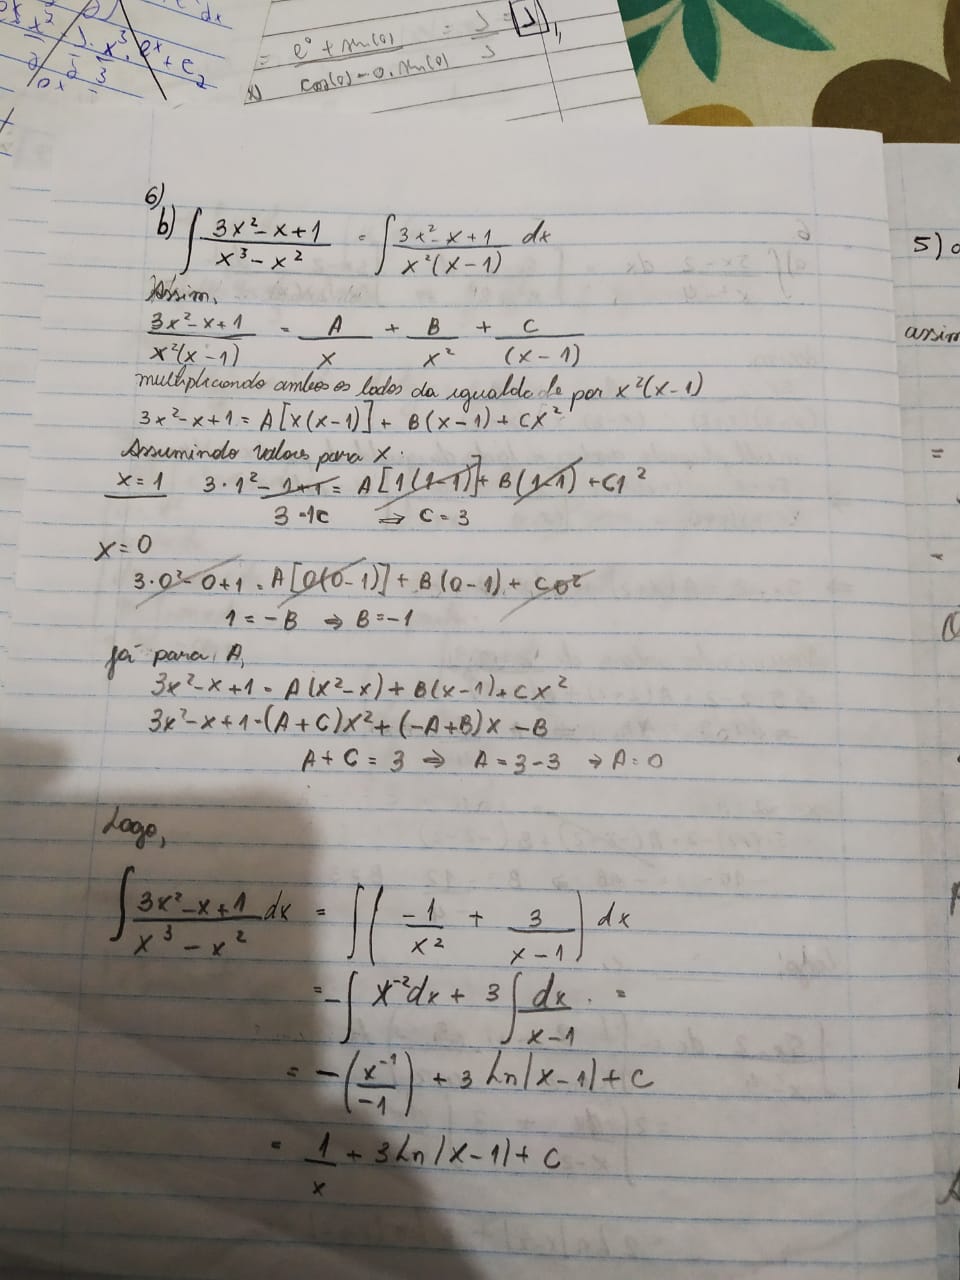 = e⁰ + sen(0) / cos(0) - 0.sen(0) = 1/1 = 1
6)
b) ∫ 3x² - x + 1 / x³ - x² = ∫ 3x² - x + 1 / x²(x - 1) dx
Assim,
3x² - x + 1 / x²(x - 1) = A / x + B / x² + C / (x - 1)
multiplicando ambos os lados da igualdade por x²(x - 1)
3x² - x + 1 = A[x(x - 1)] + B(x - 1) + Cx²
Assumindo valores para x:
x = 1 3·1² - 1 + 1 = A[1(1 - 1)] + B(1 - 1) + C1²
3 = 1C ⇒ C = 3
x = 0
3·0² - 0 + 1 = A[0(0 - 1)] + B(0 - 1) + C0²
1 = -B ⇒ B = -1
já para A,
3x² - x + 1 = A(x² - x) + B(x - 1) + Cx²
3x² - x + 1 = (A + C)x² + (-A + B)x - B
A + C = 3 ⇒ A = 3 - 3 ⇒ A = 0
Logo,
∫ 3x² - x + 1 / x³ - x² dx = ∫ ( -1 / x² + 3 / x - 1 ) dx
= - ∫ x⁻² dx + 3 ∫ dx / x - 1 . =
= - ( x⁻¹ / -1 ) + 3 Ln|x - 1| + C
= 1 / x + 3 Ln|x - 1| + C
5)
assim